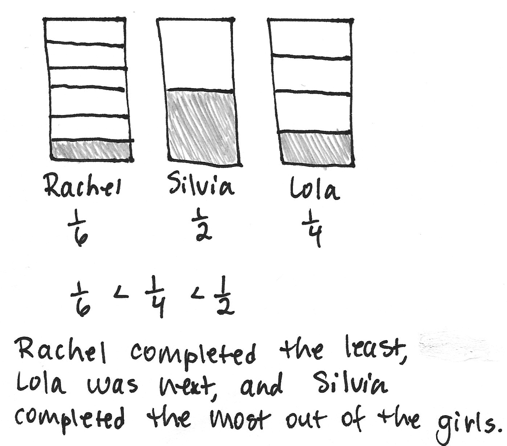 Rachel Silvia Lola
1/6 1/2 1/4
1/6 < 1/4 < 1/2
Rachel completed the least,
Lola was next, and Silvia
completed the most out of the girls.